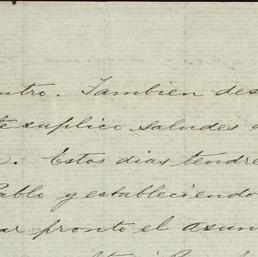 ntro. Tambien des
te suplico saludes a
. Estos dias tendre
Pablo y estableciendo
ar pronto el asun